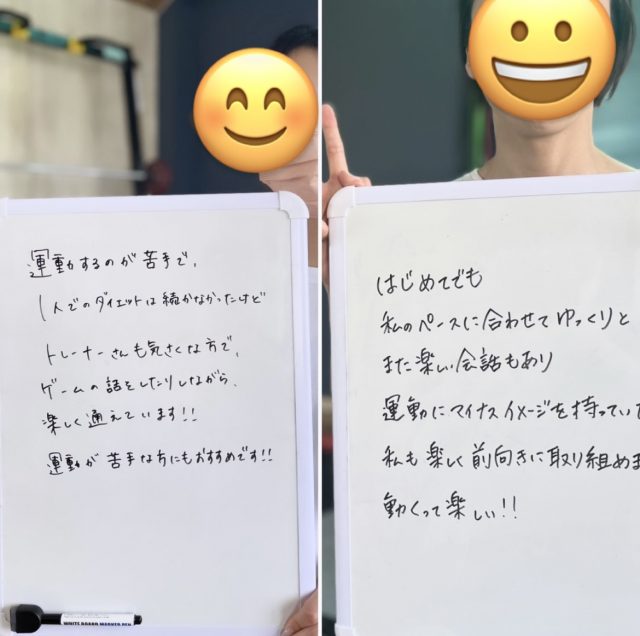 運動するのが苦手で、
1人でのダイエットは続かなかったけど
トレーナーさんも気さくな方で、
ゲームの話をしたりしながら、
楽しく通えています!!
運動が苦手な方にもおすすめです!!
WHITE BOARD MARKER PEN
はじめてでも
私のペースに合わせてゆっくりと
また楽しい会話もあり
運動にマイナスイメージを持っていた
私も楽しく前向きに取り組めま
動くって楽しい!!